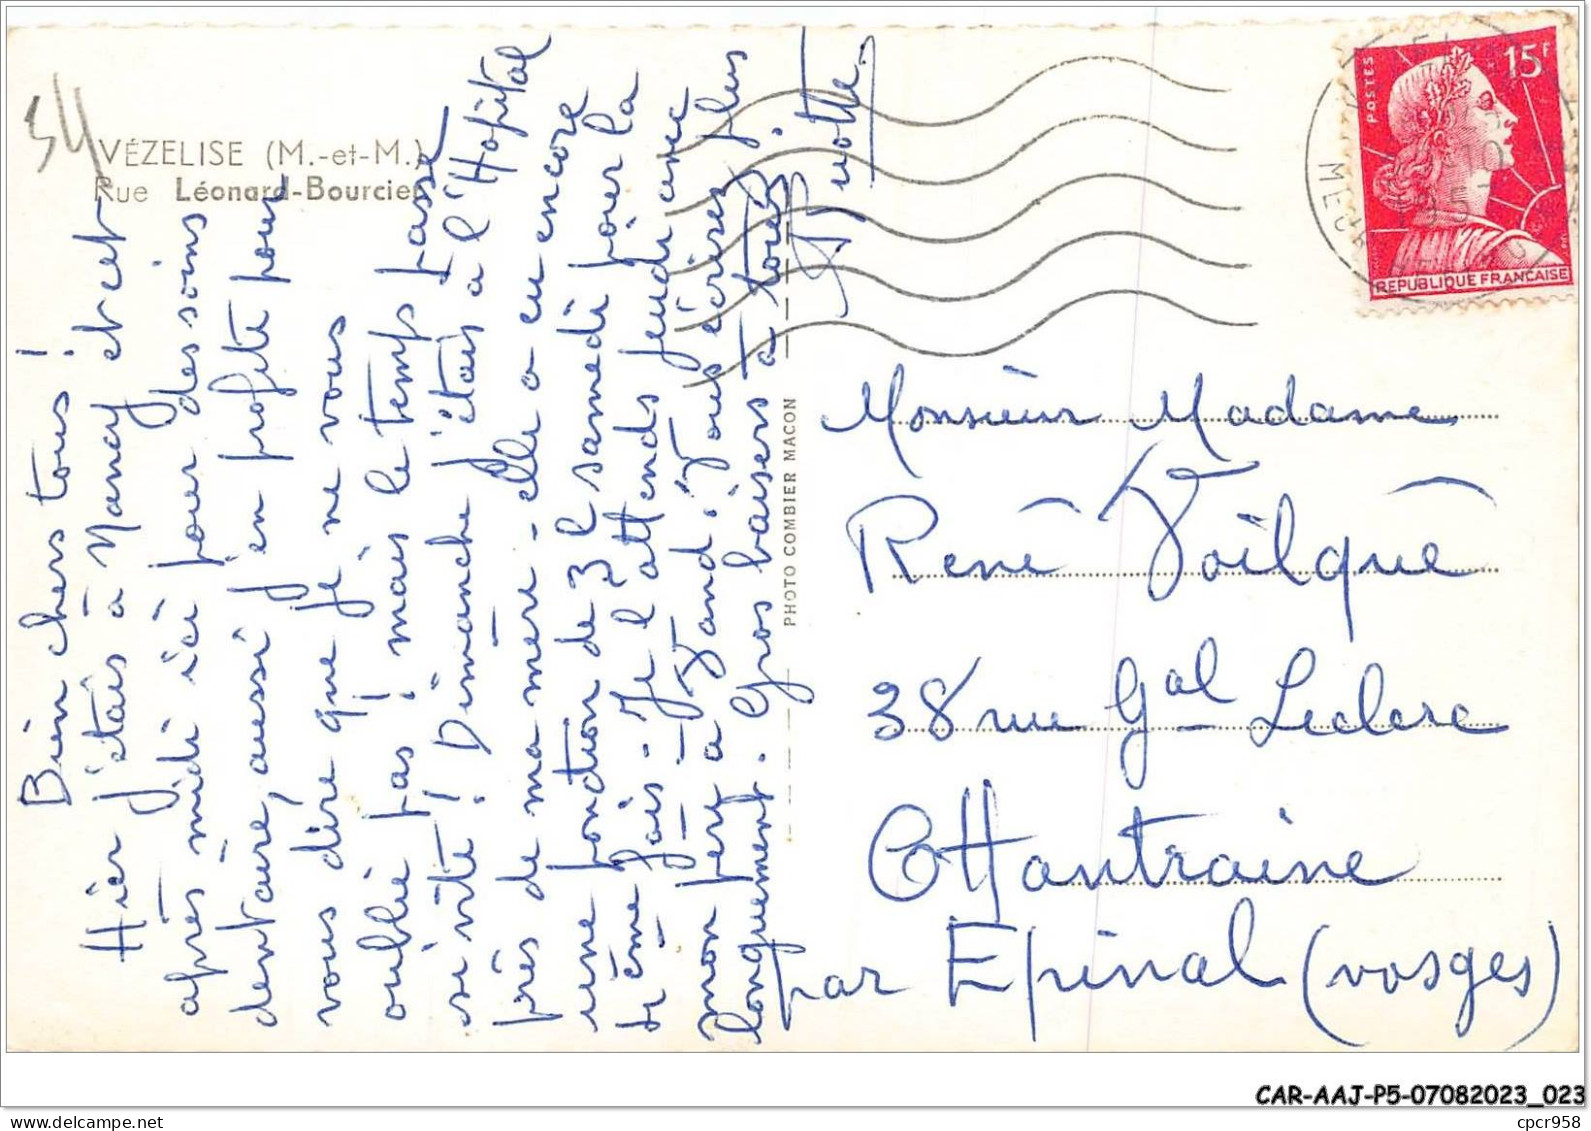 54
VÉZELISE (M.-et-M.)
Rue Léonard-Bourcier
Bien chers tous !
Hier j'étais à Nancy et cet
après midi ici pour des soins
dentaire, aussi j'en profite pour
vous dire que je ne vous
oublie pas ! mais le temps passe
si vite ! Dimanche j'étais à l'Hopital
près de ma mère - elle a eu encore
une ponction de 3l samedi pour la
4ème fois - Je l'attends jeudi avec
mon père à Vous écrirez plus
longuement. Gros baisers à tous.
PHOTO COMBIER MACON
POSTES
15F
REPUBLIQUE FRANÇAISE
Monsieur Madame
René Voilqué
38 rue Gal Leclerc
Chantraine
par Epinal (Vosges)
CAR-AAJ-P5-07082023_023
cpcr958